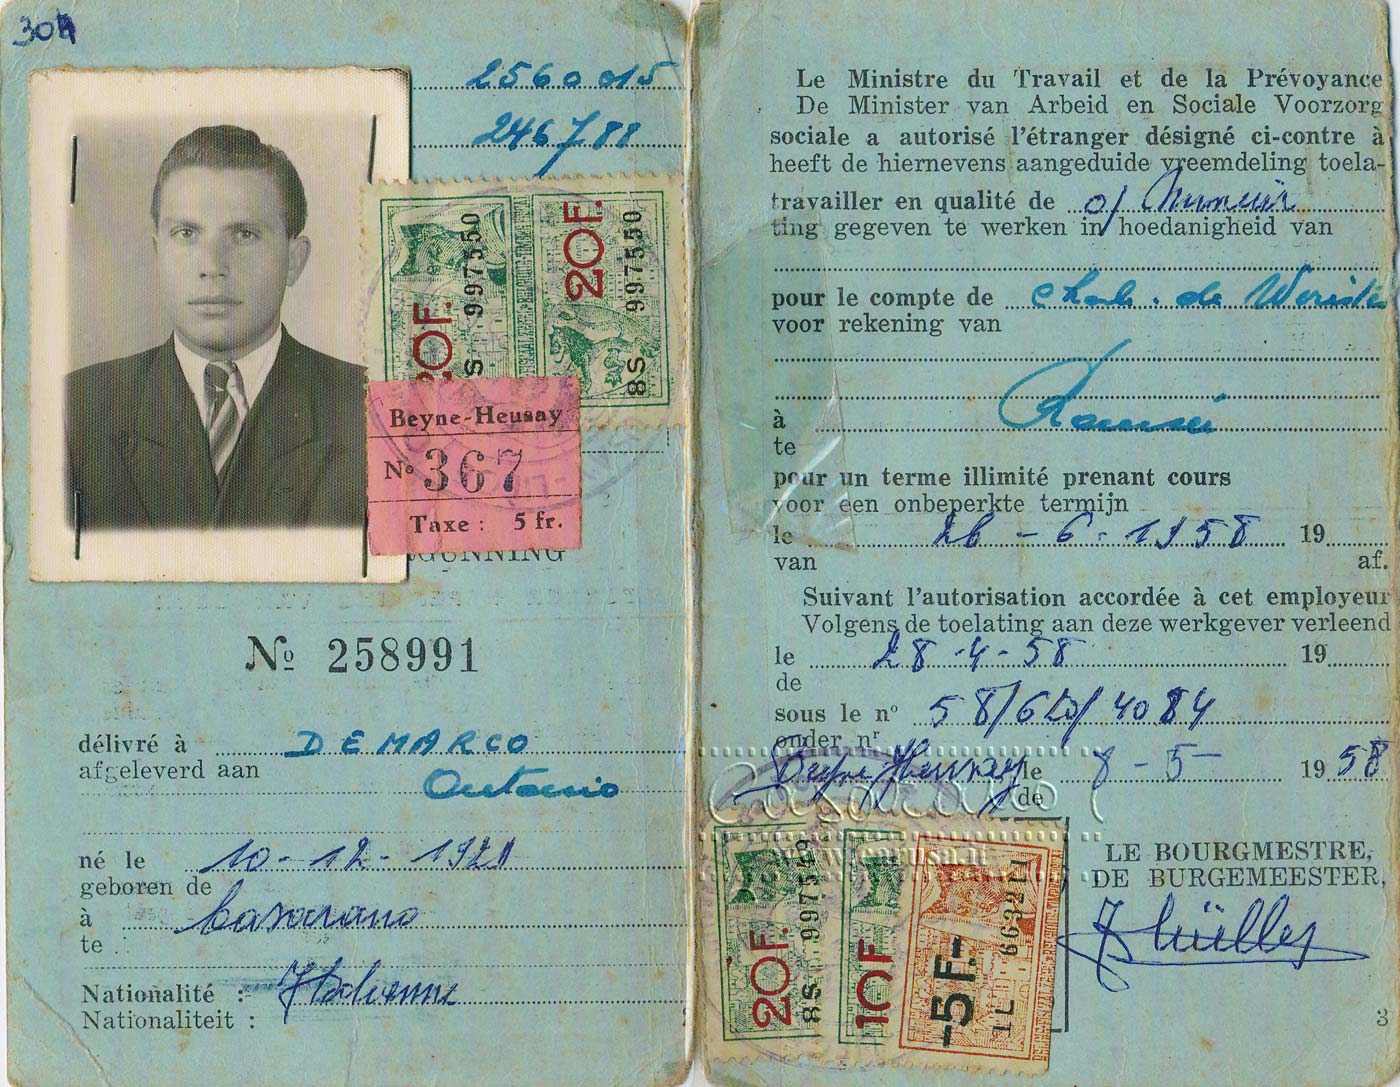 304
2560015
246788
20F.
8S 997550
20F.
8S 997550
Beyne-Heusay
Nº 367
Taxe : 5 fr.
GUNNING
Nº 258991
délivré à DEMARCO
afgeleverd aan Antonio
né le 10-12-1921
geboren de
à Casarano
te
Nationalité : Italienne
Nationaliteit :
Le Ministre du Travail et de la Prévoyance
De Minister van Arbeid en Sociale Voorzorg
sociale a autorisé l'étranger désigné ci-contre à
heeft de hiernevens aangeduide vreemdeling toela-
travailler en qualité de
ting gegeven te werken in hoedanigheid van
pour le compte de Charb. de Wérister
voor rekening van
à Romsée
te
pour un terme illimité prenant cours
voor een onbeperkte termijn
le 26-6-1958 19
van af.
Suivant l'autorisation accordée à cet employeur
Volgens de toelating aan deze werkgever verleend
le 28-4-58 19
de
sous le nº 58/620/4084
onder nr
Beyne-Heusay le 8-5- 1958
de
Casarano
www.carusa.it
20F.
8S 997549
10F
-5F.-
1L 663211
LE BOURGMESTRE,
DE BURGEMEESTER,
3